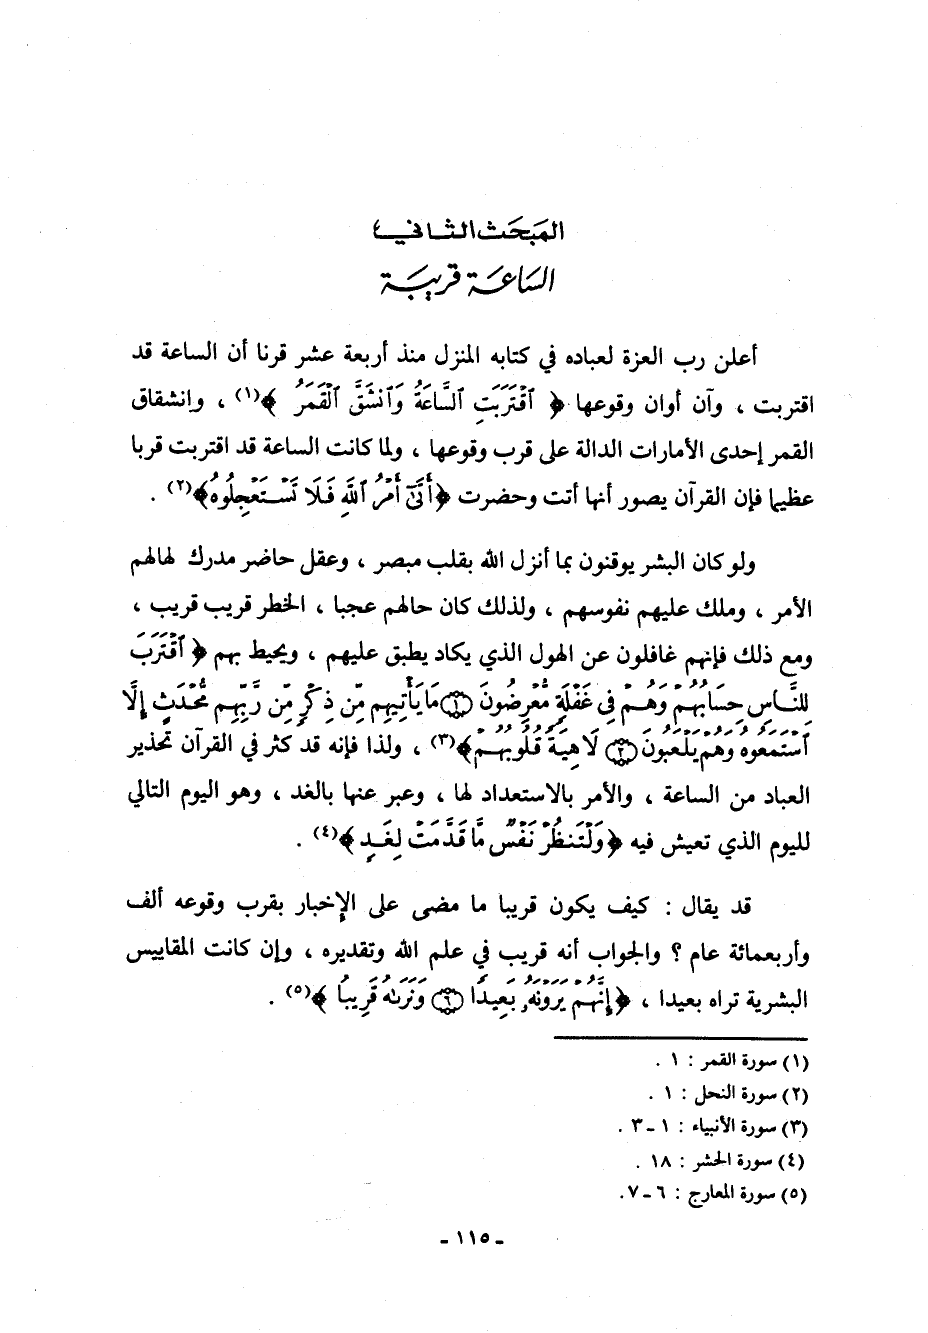 المبحث الثاني
الساعة قريبة
أعلن رب العزة لعباده في كتابه المنزل منذ أربعة عشر قرنا أن الساعة قد
اقتربت ، وآن أوان وقوعها ﴿ ٱقْتَرَبَتِ ٱلسَّاعَةُ وَٱنشَقَّ ٱلْقَمَرُ ﴾(١) ، وانشقاق
القمر إحدى الأمارات الدالة على قرب وقوعها ، ولما كانت الساعة قد اقتربت قربا
عظيما فإن القرآن يصور أنها أتت وحضرت ﴿أَتَىٰٓ أَمْرُ ٱللَّهِ فَلَا تَسْتَعْجِلُوهُ﴾(٢) .
ولو كان البشر يوقنون بما أنزل الله بقلب مبصر ، وعقل حاضر مدرك لهالهم
الأمر ، وملك عليهم نفوسهم ، ولذلك كان حالهم عجبا ، الخطر قريب قريب ،
ومع ذلك فإنهم غافلون عن الهول الذي يكاد يطبق عليهم ، ويحيط بهم ﴿ ٱقْتَرَبَ
لِلنَّاسِ حِسَابُهُمْ وَهُمْ فِى غَفْلَةٍ مُّعْرِضُونَ ۝١ مَا يَأْتِيهِم مِّن ذِكْرٍ مِّن رَّبِّهِم مُّحْدَثٍ إِلَّا
ٱسْتَمَعُوهُ وَهُمْ يَلْعَبُونَ ۝٢ لَاهِيَةً قُلُوبُهُمْ﴾(٣) ، ولذا فإنه قد كثر في القرآن تحذير
العباد من الساعة ، والأمر بالاستعداد لها ، وعبر عنها بالغد ، وهو اليوم التالي
لليوم الذي تعيش فيه ﴿وَلْتَنظُرْ نَفْسٌ مَّا قَدَّمَتْ لِغَدٍ﴾(٤) .
قد يقال : كيف يكون قريبا ما مضى على الإخبار بقرب وقوعه ألف
وأربعمائة عام ؟ والجواب أنه قريب في علم الله وتقديره ، وإن كانت المقاييس
البشرية تراه بعيدا ، ﴿إِنَّهُمْ يَرَوْنَهُۥ بَعِيدًا ۝٦ وَنَرَىٰهُ قَرِيبًا ﴾(٥) .
(١) سورة القمر : ١ .
(٢) سورة النحل : ١ .
(٣) سورة الأنبياء : ١ ـ ٣ .
(٤) سورة الحشر : ١٨ .
(٥) سورة المعارج : ٦ ـ ٧.
ـ ١١٥ ـ